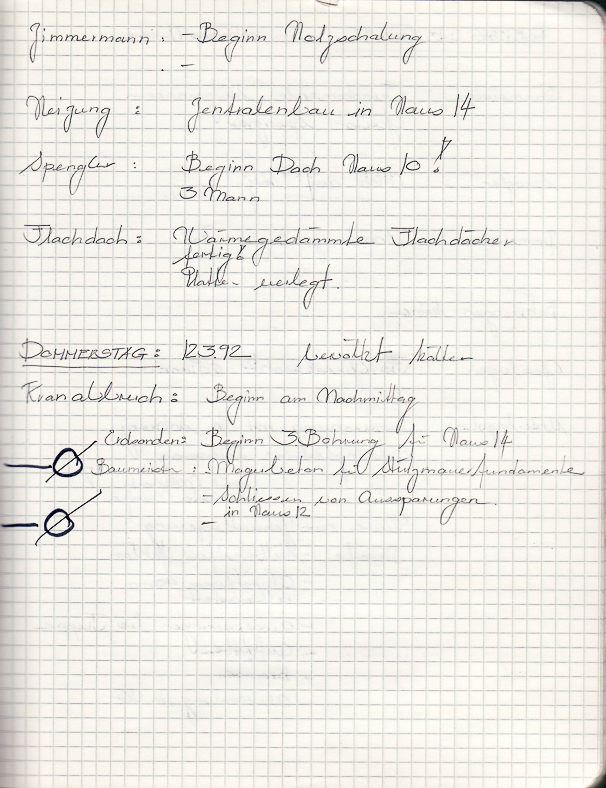 Zimmermann : - Beginn Holzschalung
-
Heizung : Zentralenbau in Haus 14
Spengler : Beginn Dach Haus 10 !
3 Mann
Flachdach : Wärmegedämmte Flachdächer
fertig!
Platten verlegt.
DONNERSTAG : 12.3.92 bewölkt kälter
Kranabbruch : Beginn am Nachmittag
Erdsonden : Beginn 3. Bohrung für Haus 14
Baumeister : - Magerbeton für Stützmauerfundamente
- Schliessen von Aussparungen
in Haus 12
-